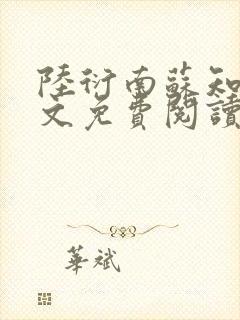 陸衍南蘇知
文免費閱讀
華斌